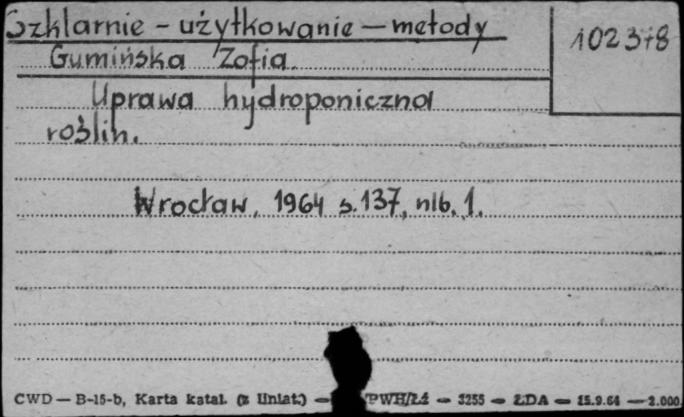 Szklarnie - użytkowanie - metody
102378
Gumińska Zofia
Uprawa hydroponiczna
roślin.
Wrocław, 1964 s. 137, nlb. 1.
CWD — B-15-b, Karta katal. (z Uniat.) — PWH/Łź — 3255 — ŁDA — 15.9.64 — 2.000.